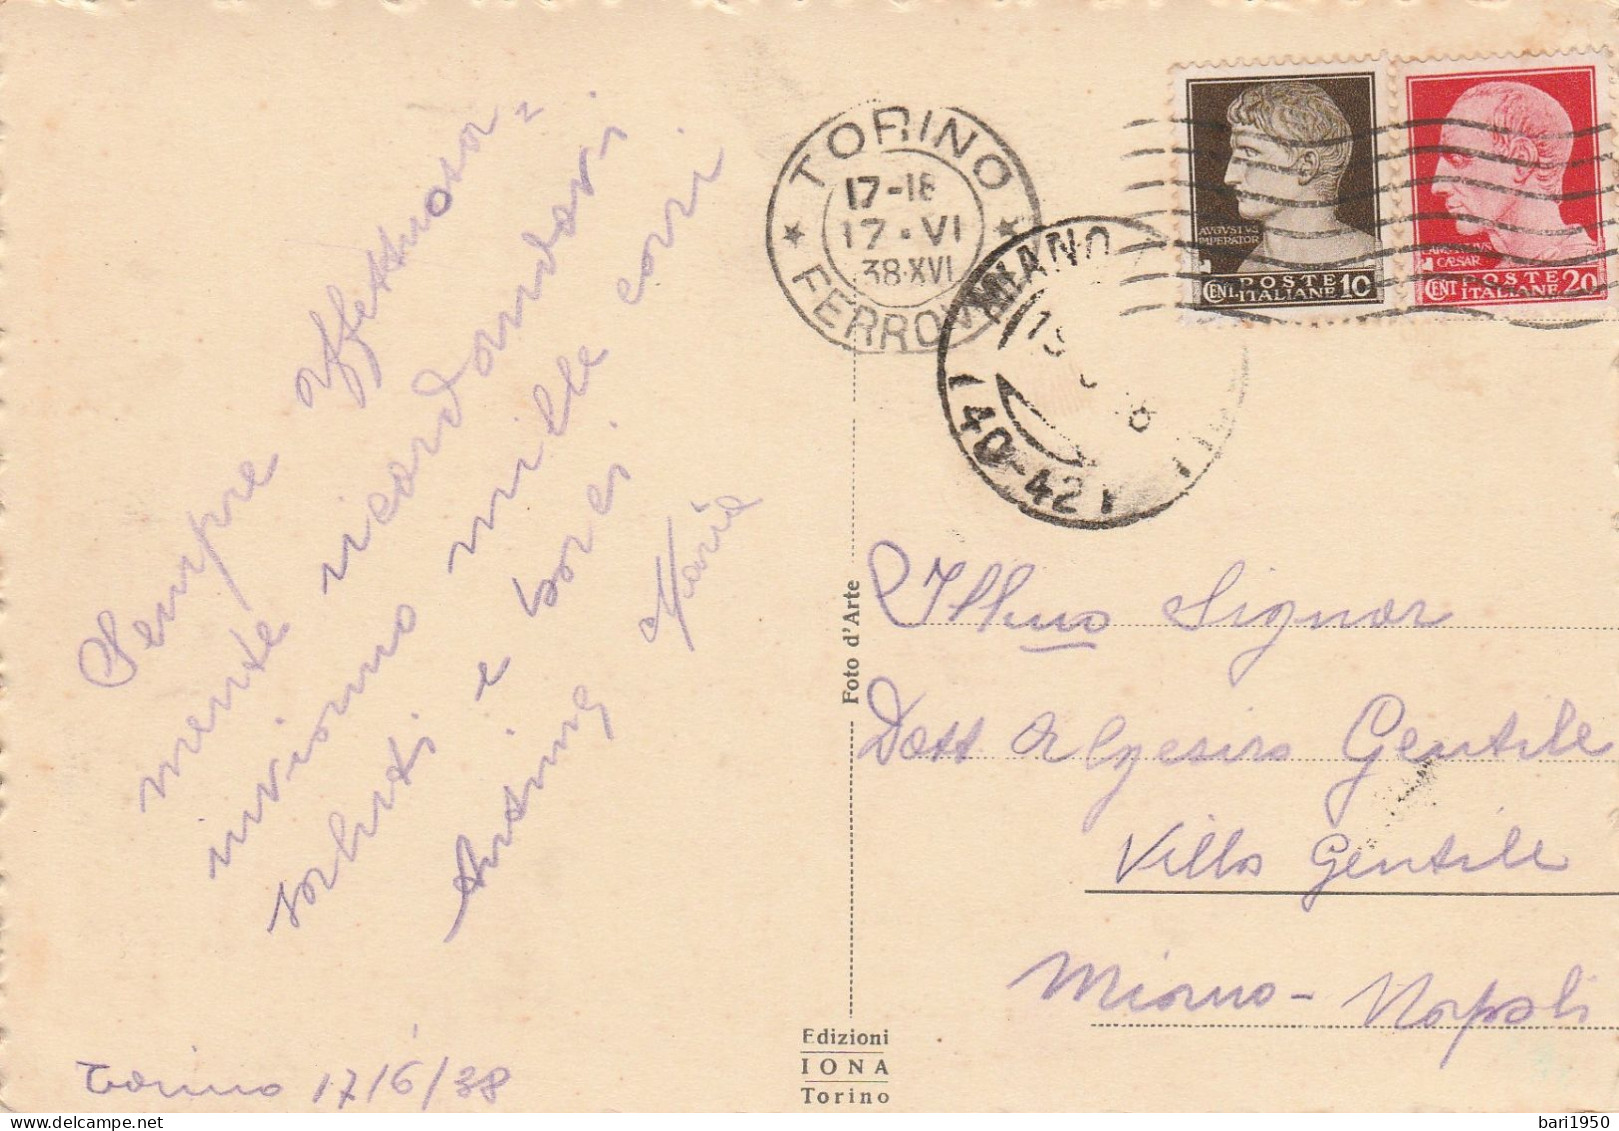 Sempre affettuosa=
mente ricordandovi
inviamo mille cari
saluti e baci
Maria
Torino 17/6/38
TORINO
FERROVIA
17-18
17·VI
38·XVI
MIANO
(40-42)
AVGVSTVS
IMPERATOR
CENT. POSTE ITALIANE 10
CAESAR
CENT POSTE ITALIANE 20
Foto d'Arte
Illmo Signor
Dott Algesiro Gentile
Villa Gentile
Miano - Napoli
Edizioni
IONA
Torino
bari1950